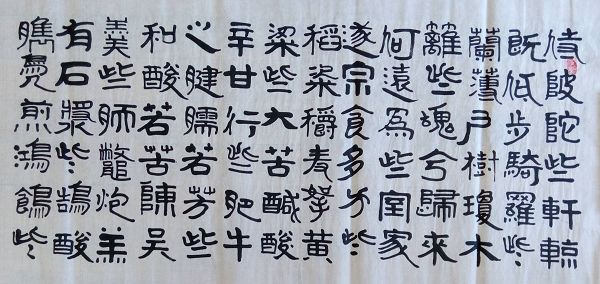 侍陂陀些軒輬
既低步騎羅些
蘭薄戶樹瓊木
籬些魂兮歸來
何遠為些室家
遂宗食多方些
稻粢穱麦挐黄
粱些大苦醎酸
辛甘行些肥牛
之腱臑若芳些
和酸若苦陳吳
羹些胹鼈炮羔
有石漿些鵠酸
臇鳧煎鴻鶬些